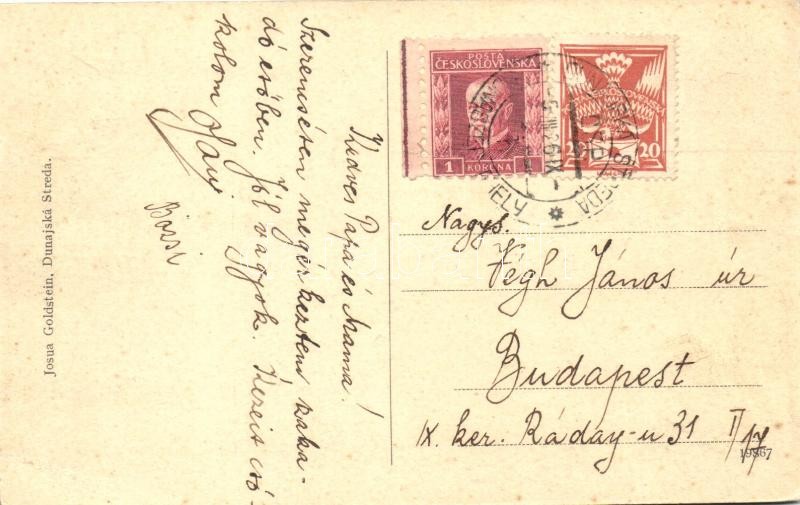 Kedves Papa és Mama!
Szerencsésen megérkeztem szaka-
dó esőben. Jól vagyok. Kezeit csó-
kolom
Bözsi
Josua Goldstein, Dunajská Streda.
POSTA
ČESKOSLOVENSKÁ
1 KORUNA
20 20
Nagys.
Végh János úr
Budapest
IX. ker. Ráday-u 31 I/17
19867